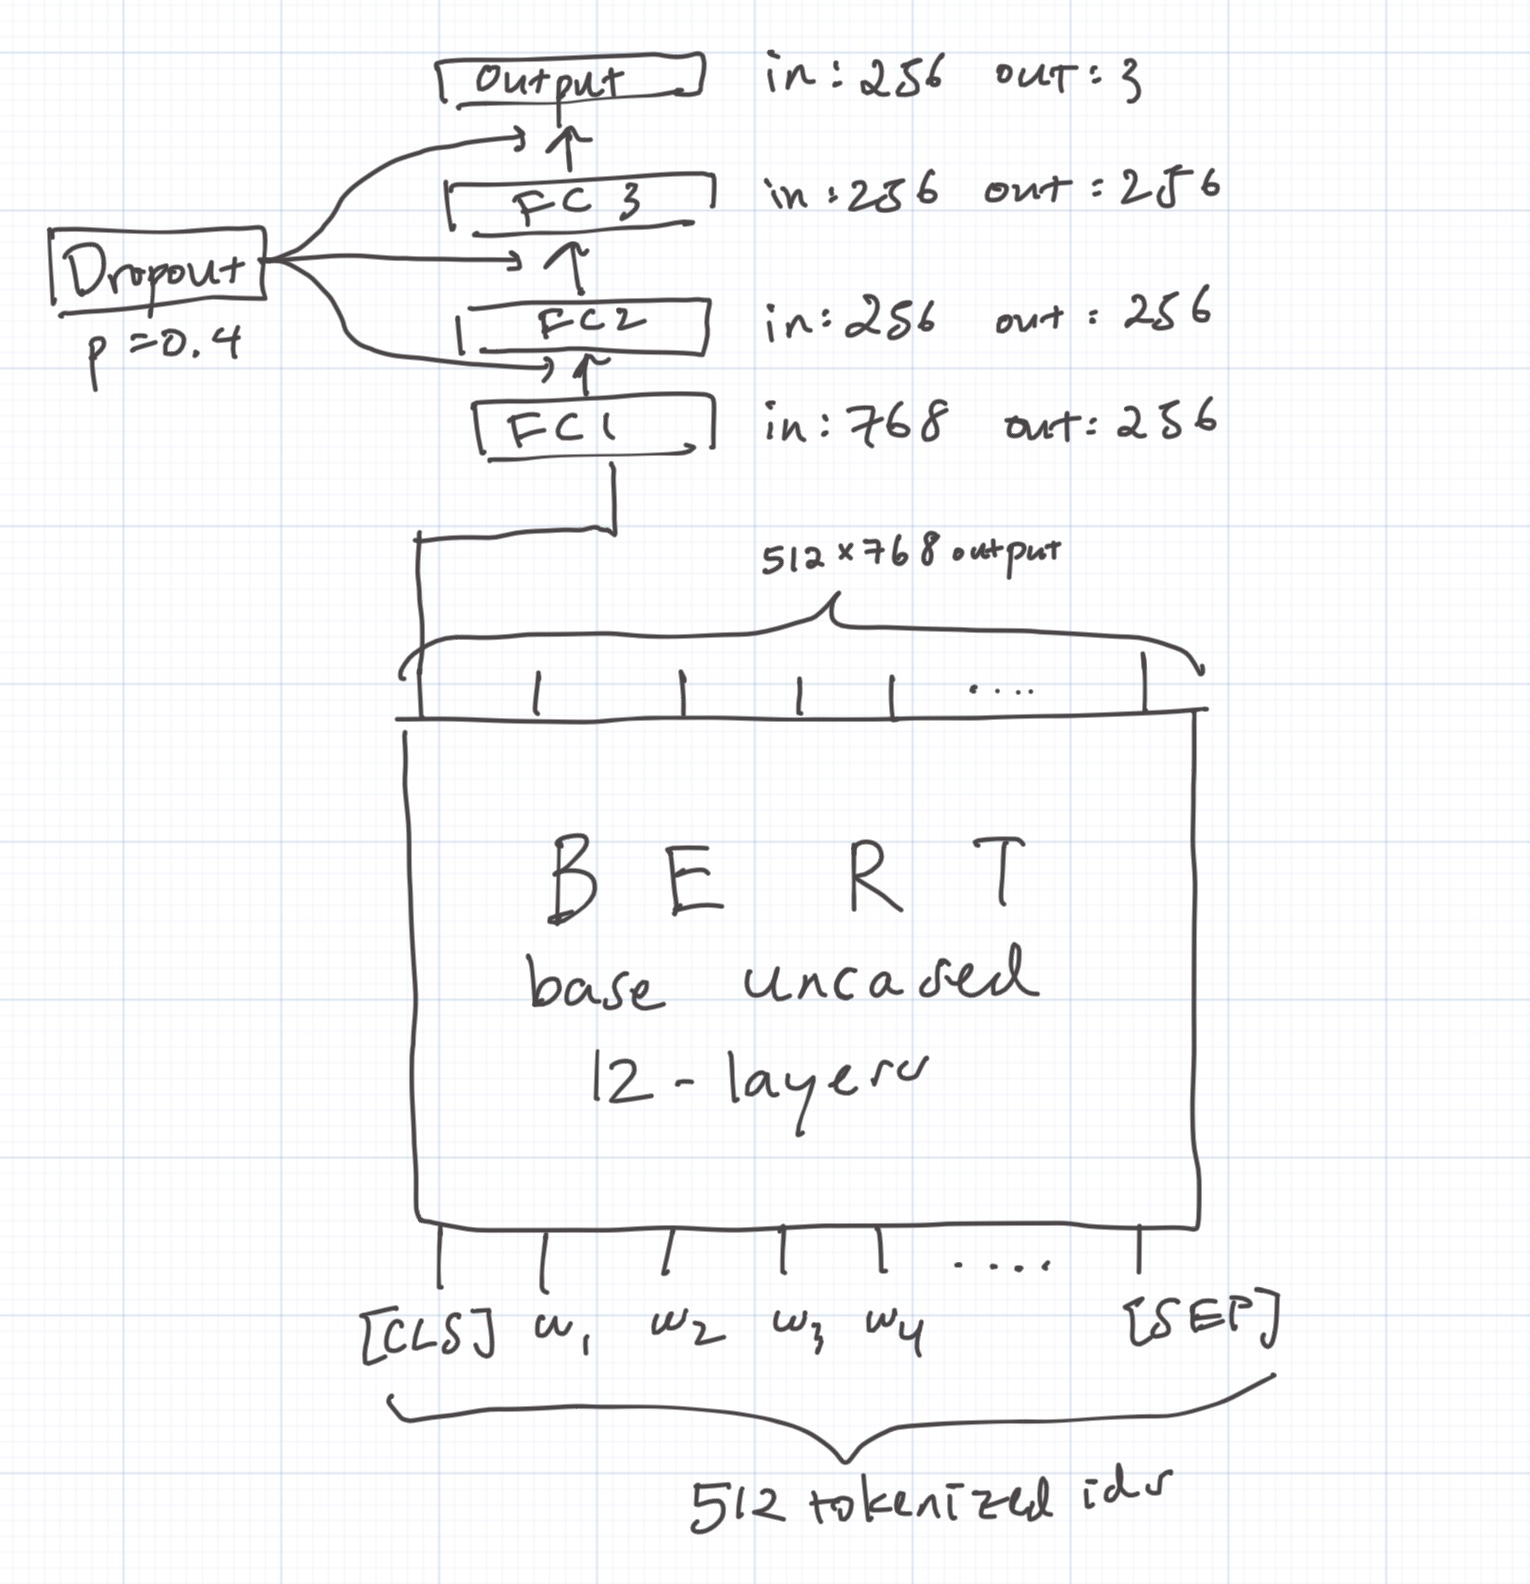 Output in: 256 out: 3
FC 3 in: 256 out: 256
Dropout
p = 0.4
FC2 in: 256 out: 256
FC1 in: 768 out: 256
512 × 768 output
BERT
base uncased
12 - layers
[CLS] w1 w2 w3 w4 .... [SEP]
512 tokenized ids